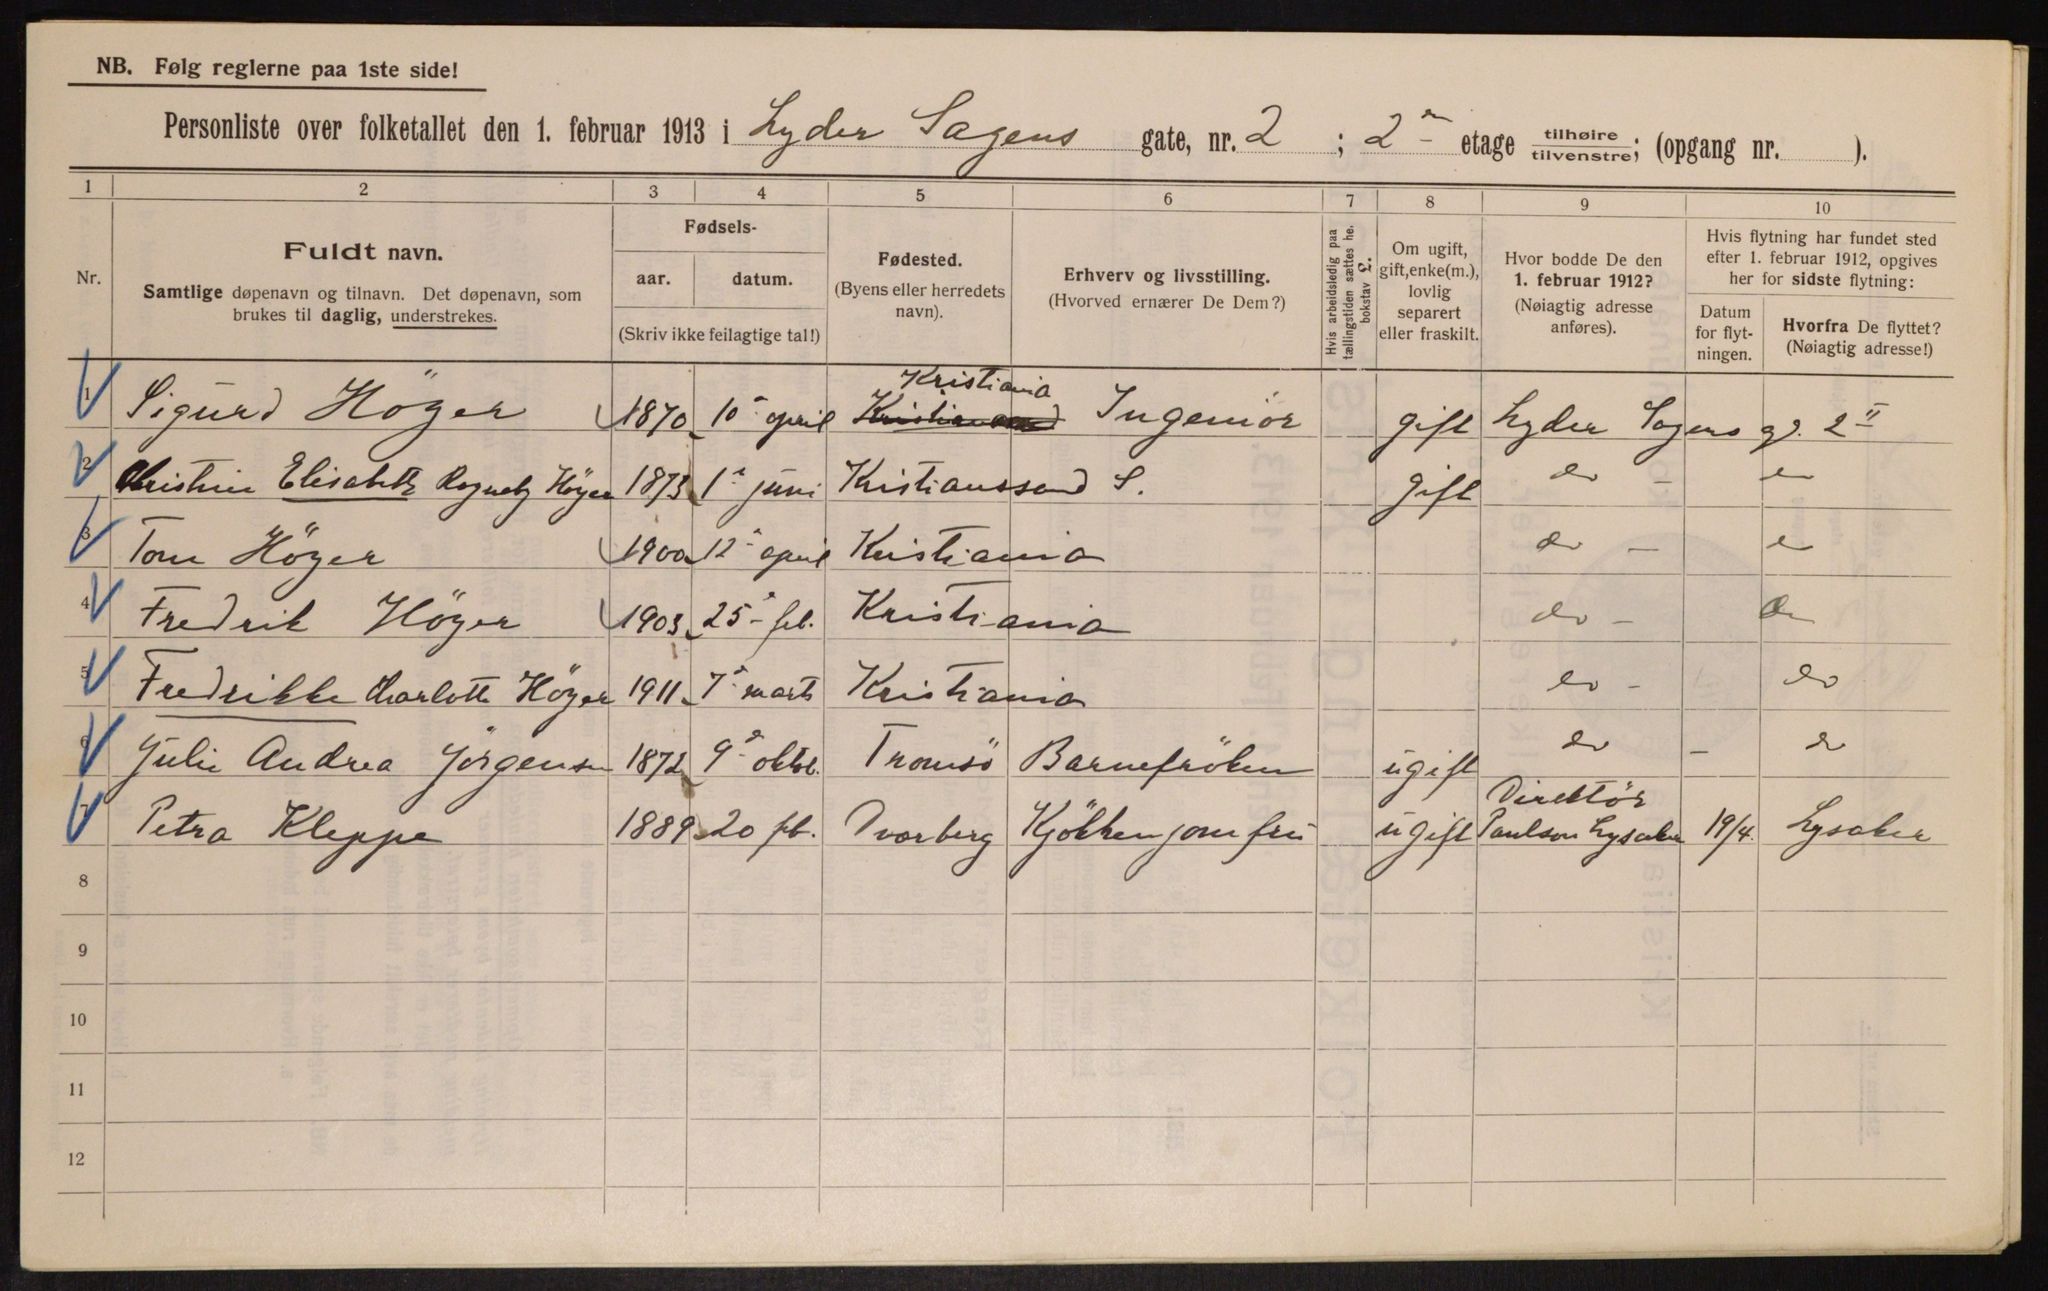 NB. Følg reglerne paa 1ste side!
Personliste over folketallet den 1. februar 1913 i Lyder Sagens gate, nr. 2 ; 2 etage tilhøire/tilvenstre; (opgang nr. ).
1 2 3 4 5 6 7 8 9 10
Nr.
Fuldt navn.
Samtlige døpenavn og tilnavn. Det døpenavn, som
brukes til daglig, understrekes.
Fødsels-
aar. datum.
(Skriv ikke feilagtige tal!)
Fødested.
(Byens eller herredets
navn).
Erhverv og livsstilling.
(Hvorved ernærer De Dem?)
Hvis arbeidsledig paa
tællingstiden sættes he.
bokstav L.
Om ugift,
gift, enke(m.),
lovlig
separert
eller fraskilt.
Hvor bodde De den
1. februar 1912?
(Nøiagtig adresse
anføres).
Hvis flytning har fundet sted
efter 1. februar 1912, opgives
her for sidste flytning:
Datum
for flyt-
ningen.
Hvorfra De flyttet?
(Nøiagtig adresse!)
Kristiania
1 Sigurd Höyer 1870 10 april Kristianssand Ingeniör gift Lyder Sagens gt. 2 II
2 Christine Elisabeth Höyer 1873 1 juni Kristianssand S. gift do -
3 Tom Höyer 1900 12 april Kristiania do -
4 Fredrik Höyer 1903 25 feb. Kristiania do - do
5 Fredrikke Charlotte Höyer 1911 7 marts Kristiania do - do
6 Julie Andrea Jörgensen 1872 9 oktob. Tromsö Barnefröken ugift do - do
Direktör
7 Petra Kleppe 1889 20 feb. Dvarberg Kjökkenjomfru ugift Paulson Lysaker 19/4. Lysaker
8
9
10
11
12